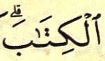 ٱلْكِتَٰبَ ۗ